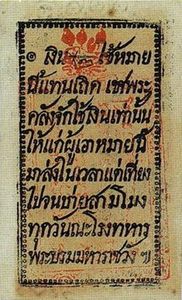 ๏ เงิน ใช้หมาย
นี้แทนเถิด พระ
คลังจักใช้เงินเท่านั้น
ให้แก่ผู้เอาหมายนี้
มาส่งในเวลาแต่เที่ยง
ไปจนบ่ายสามโมง
ทุกวันณะโรงทหาร
พระบรมมหาราชวัง ๚